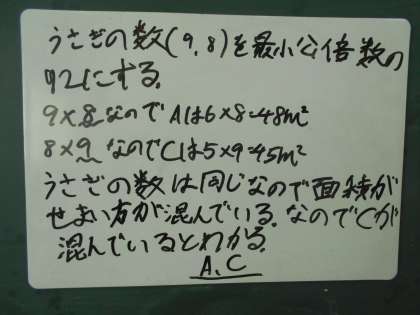 うさぎの数(9,8)を最小公倍数の
72にする。
9×8なのでAは6×8=48m²
8×9なのでCは5×9=45m²
うさぎの数は同じなので面積が
せまい方が混んでいる。なのでCが
混んでいるとわかる。
A,C